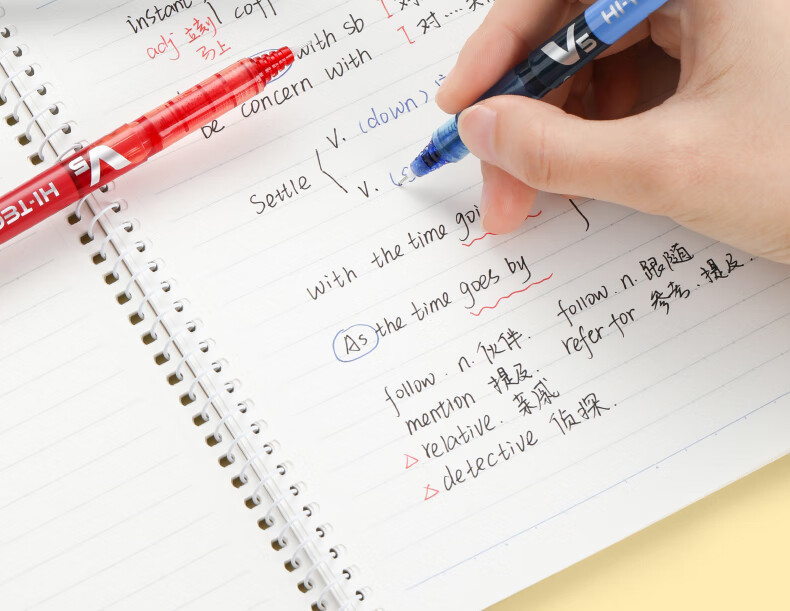 instant
coff
adj 立刻
马上
with sb
对……
be concern with
对
Settle
v. (down)
v. (s
with the time goi
As the time goes by
follow. n. 伙伴.
follow. n. 跟随
mention 提及.
refer for 参考. 提及.
△ relative. 亲戚
△ detective 侦探.
HI-TEC
V5
HI-T
V5